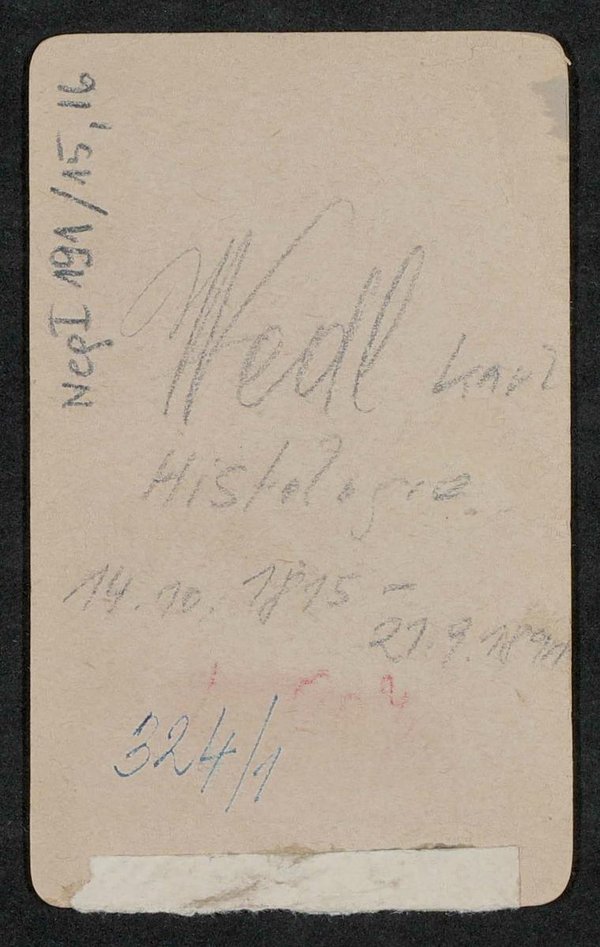 Neg I 191/15,16
Wedl Karl
Histologie
14.10.1815 -
21.9.1891
324/1